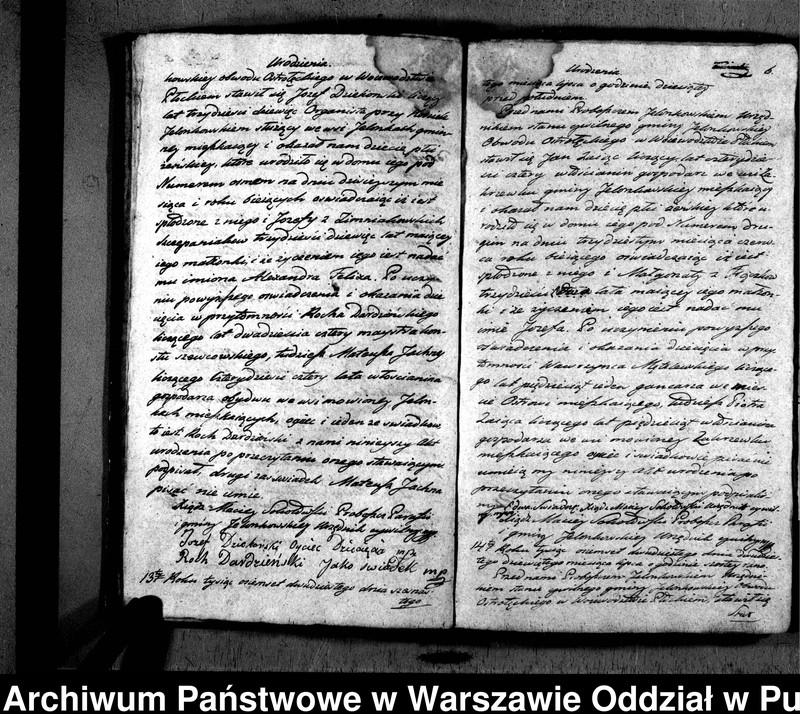 Urodzenia.
kowskiey obwodu Ostrołęckiego w Woiewodztwie
Płockiem stawił się Jozef Dziekonski liczący
lat trzydzieści dziewięć Organista przy Kościele
Jelonkowskiem służący we wsi Jelonkach gmin-
ney mięszkaiący i okazał nam dziecię płci
męskiey, które urodziło się w domu iego pod
Numerem osmem na dniu dzisieyszym mie-
siąca i roku bieżących oswiadczaiąc iż iest
spłodzone z niego i Jozefy z
trzydzieści dziewięć lat maiącey
iego małżonki i że życzeniem iego iest nadać
mu imiona Alexandra Felixa. Po uczynie-
niu powyższego oswiadczenia i okazania dzie-
cięcia w przytomności Rocha Dardzińskiego
liczącego lat dwadzieścia cztery maystra kon-
sztu szewcowskiego, tudzież Mateusza Jachry
liczącego czterydzieści cztery lata włościanina
gospodarza obydwu we wsi mowioney Jelon-
kach mięszkaiących, oyciec i ieden ze swiadków
to iest Roch Dardzinski z nami ninieyszy Akt
urodzenia po przeczytaniu onego stawaiącym
podpisał, drugi zaś swiadek Mateusz Jachra
pisać nie umie.
Xiądz Maciey Sokołowski Proboszcz Parafii
i gminy Jelonkowskiey Urzędnik cywilny
Jozef Dziekonski Oyciec Dziecięcia mp
Roch Dardzieński Jako swiadek mp
13te Roku tysiąc osmset dwudziestego dnia szesnas-
tego
6.
Urodzenia
tego miesiąca lipca o godzinie dziewiątey
przed południem
Przed nami Proboszczem Jelonkowskiem Urzęd-
nikem stanu cywilnego gminy Jelonkowskiey
Obwodu Ostrołęckiego w Woiewodztwie Płockiem
stawił się Jan Zając liczący lat czterydzie-
ści cztery włościanin gospodarz we wsi
gminy Jelonkowskiey mięszkaiący
i okazał nam dziecię płci żenskiey które u-
rodziło się w domu iego pod Numerem dru-
gim na dniu trzydziestym miesiąca czerw-
ca roku bieżącego oswiadczaiąc iż iest
spłodzone z niego i Małgorzaty z
trzydzieści lata maiącey iego małżon-
ki i że życzeniem iego iest nadać mu
imie Jozefa. Po uczynieniu powyższego
oswiadczenia i okazania dziecięcia w przy-
tomności Wawrzynca liczące-
go lat pięćdziesiąt ieden we mieś-
cie Ostrowi mięszkaiącego, tudzież Piotra
Zaiąca liczącego lat pięćdziesiąt włościanina
gospodarza we wsi mowioney
mięszkaiącego oyciec i swiadkowie pisać nie
umieią my ninieyszy Akt urodzenia po
przeczytaniu onego stawaiącym podpisali-
smy
Xiądz Maciey Sokołowski Proboszcz Parafii
i gminy Jelonkowskiey Urzędnik cywilny
14te Roku tysiąc osmset dwudziestego dnia
tego dziewiątego miesiąca lipca o godzinie szostey rano.
Przed nami Proboszczem Jelonkowskiem Urzędni-
kiem stanu cywilnego gminy Jelonkowskiey Obwodu
Ostrołęckiego w Woiewodztwie Płockiem, stawił się
Archiwum Państwowe w Warszawie Oddział w Pu